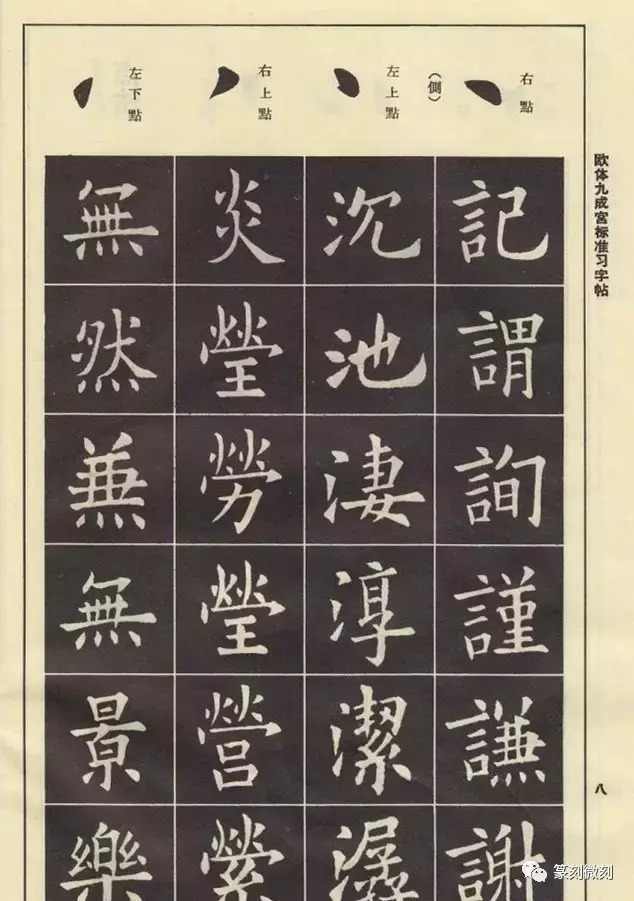 欧体九成宫标准习字帖
八
右點
（側）
左上點
右上點
左下點
記謂詢謹謙謝
沉池淒淳潔潺
炎瑩勞瑩營縈
無然兼無景樂
篆刻微刻